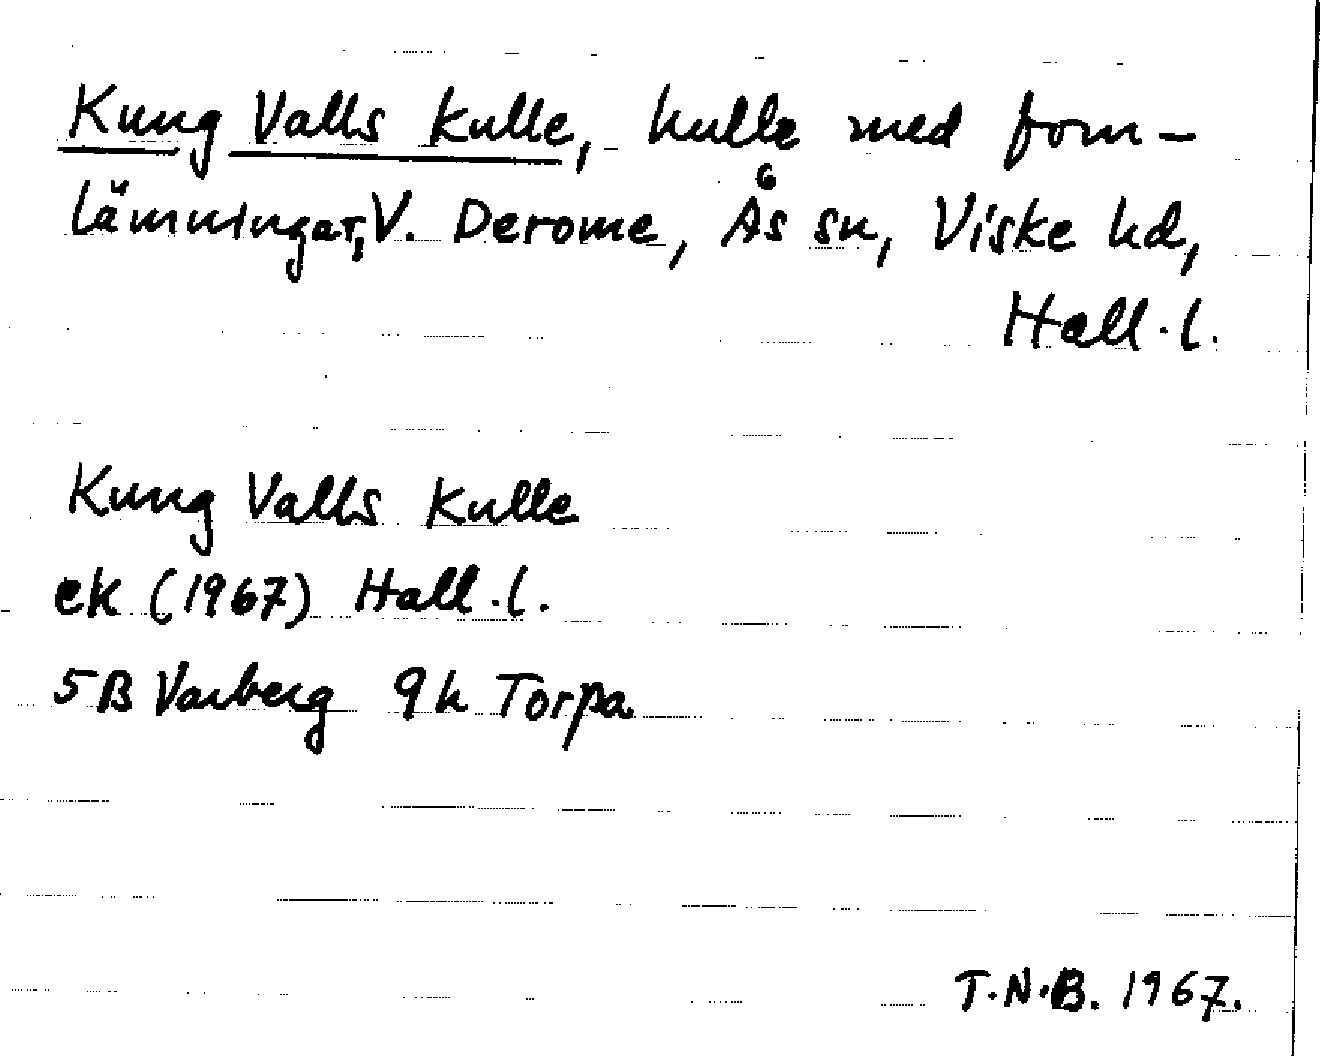 Kung Valls kulle, kulle med forn-
lämningar, V. Derome, Ås sn, Viske hd,
Hall. l.
Kung Valls Kulle
ek (1967) Hall. l.
5B Varberg 9h Torpa
T.N.B. 1967.